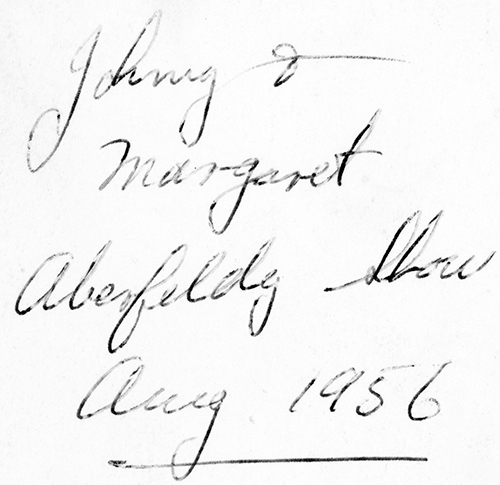 Johnny &
Margaret
Aberfeldy Show
Aug 1956